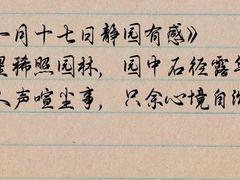 一月十七日静园有感》
星稀照园林，园中石径露华
人声喧尘事，只余心境自